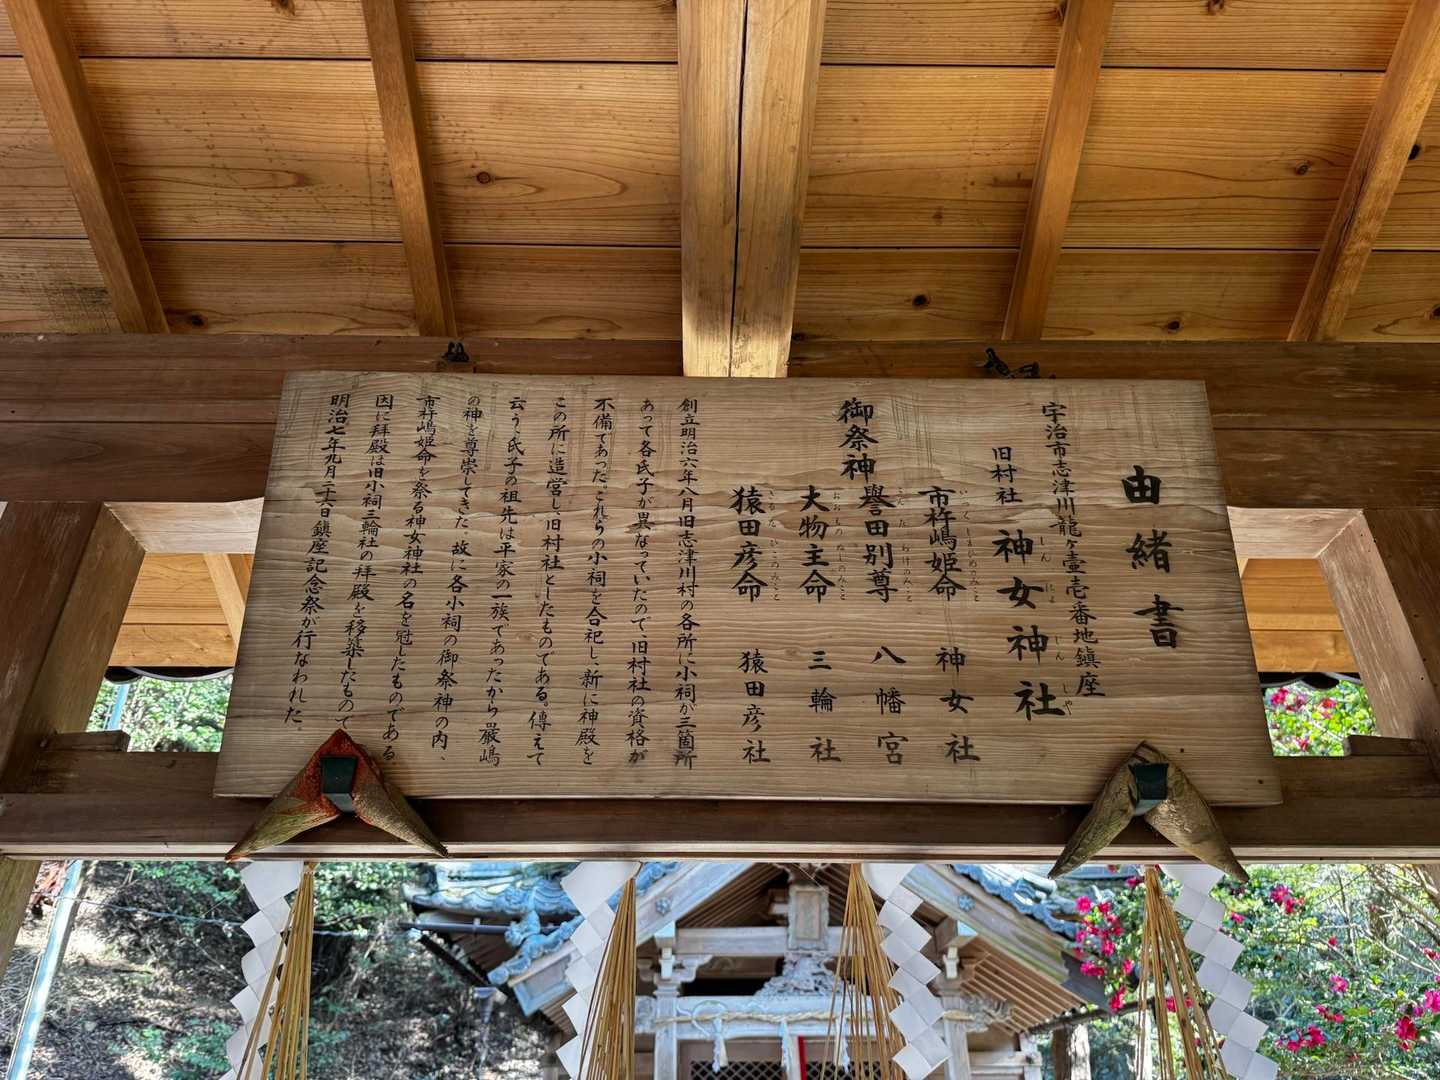 由緒書
宇治市志津川龍ヶ壹壱番地鎮座
旧村社 神女神社
しんにょじんしゃ
御祭神
市杵嶋姫命 神女社
いつくしまひめのみこと
誉田別尊 八幡宮
こんだわけのみこと
大物主命 三輪社
おおものぬしのみこと
猿田彦命 猿田彦社
さるたひこのみこと
創立明治六年八月旧志津川村の各所に小祠が三箇所
あって各氏子が異なっていたので、旧村社の資格が
不備てあった。これらの小祠を合祀し、新に神殿を
この所に造営し、旧村社としたものである。傳えて
云う、氏子の祖先は平家の一族であったから嚴嶋
の神を尊崇してきた。故に各小祠の御祭神の内、
市杵嶋姫命を祭る神女神社の名を冠したものである
因に拝殿は旧小祠三輪社の拝殿を移築したもので
明治七年九月二十六日鎮座記念祭が行なわれた。